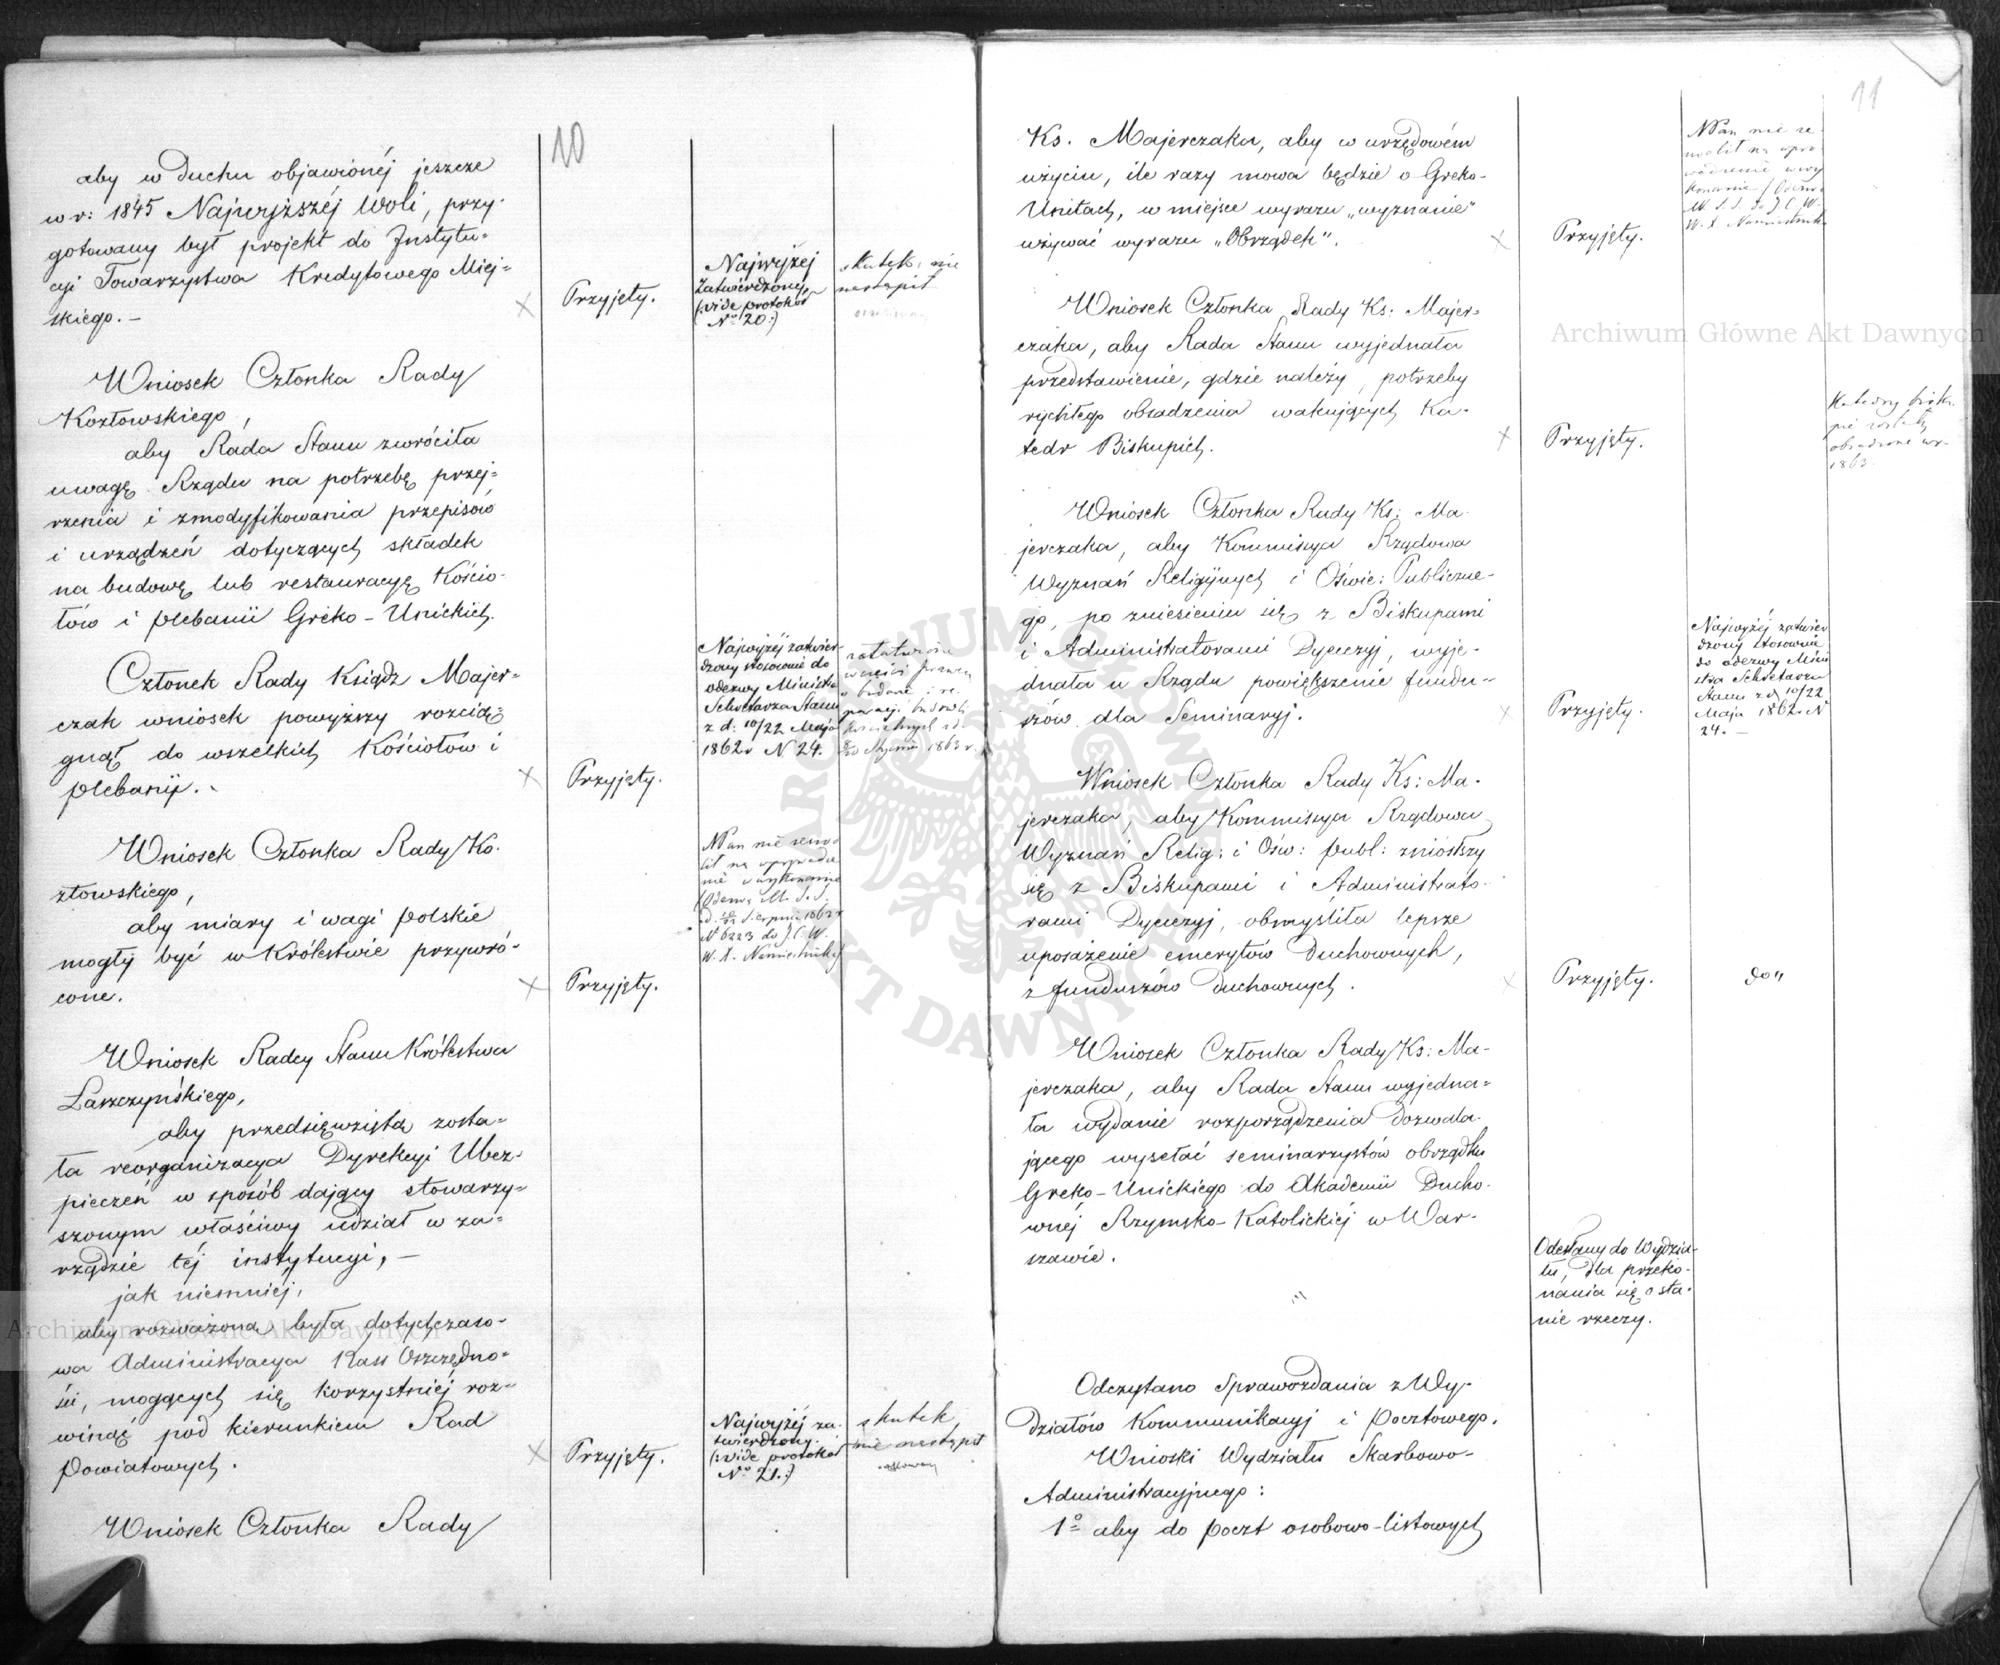 10
aby w duchu objawionéj jeszcze
w r: 1845 Najwyższéj Woli, przy-
gotowany był projekt do Instytu-
cyi Towarzystwa Kredytowego Miej-
skiego. —
Przyjęty.
Najwyżej
zatwierdzony
(:vide protokół
No 20:)
skutek nie
nastąpił
Wniosek Członka Rady
Kozłowskiego,
aby Rada Stanu zwróciła
uwagę Rządu na potrzebę przej-
rzenia i zmodyfikowania przepisów
i urządzeń dotyczących składek
na budowę lub restauracyę Kościo-
łów i plebanii Greko-Unickich.
Członek Rady Ksiądz Majer-
czak wniosek powyższy rozcią-
gnął do wszelkich Kościołów i
plebanij. -
Przyjęty.
Najwyżéj zatwier-
dzony stosownie do
odezwy Ministra
Sekretarza Stanu
z d: 10/22 Maja
1862 r N 24.
Wniosek Członka Rady Ko-
złowskiego,
aby miary i wagi polskie
mogły być w Królestwie przywró-
cone.
Przyjęty.
NPan nie zezwo
lił na wprowadze
nie w wykonanie
(Odezw. M. S. S.
d. Sierpnia 1862 r
N 6223 do J. C. W.
W. X. Namiestnika)
Wniosek Radcy Stanu Królestwa
Łaszczyńskiego,
aby przedsięwziętą zosta-
ła reorganizacya Dyrekcyi Ubez-
pieczeń w sposób dający stowarzy-
szonym właściwy udział w za-
rządzie téj instytucyi, —
jak niemniéj,
aby rozważoną była dotychczaso-
wa Administracya Kass Oszczędno-
ści, mogących się korzystniéj roz-
winąć pod kierunkiem Rad
Powiatowych.
Przyjęty.
Najwyżéj za-
twierdzony.
(:vide protokół
No 21.:)
skutek
nie nastąpił
Wniosek Członka Rady
11
Ks. Majerczaka, aby w urzędowém
użyciu, ile razy mowa będzie o Greko-
Unitach, w miejsce wyrazu „wyznanie"
używać wyrazu „Obrządek".
Przyjęty.
NPan nie ze-
zwolił na wpro-
wadzenie w wy
konanie (Odezw.
M S. S. do J. C. W.
W. X Namiestnik
Wniosek Członka Rady Ks: Majer-
czaka, aby Rada Stanu wyjednała
przedstawienie, gdzie należy, potrzeby
rychłego obsadzenia wakujących Ka-
tedr Biskupich.
Przyjęty.
Katedry bisku
pie zostały
obsadzone w r.
1863.
Wniosek Członka Rady Ks: Ma-
jerczaka, aby Kommissya Rządowa
Wyznań Religijnych i Oświe: Publiczne-
go, po zniesieniu się z Biskupami
i Administratorami Dyecezyj, wyje-
dnała u Rządu powiększenie fundu-
szów dla Seminaryj.
Przyjęty.
Najwyżéj zatwier
dzony stosownie
do odezwy Mini
stra Sekretarza
Stanu z d 10/22
Maja 1862 r N
24. —
Wniosek Członka Rady Ks: Ma-
jerczaka, aby Kommissya Rządowa
Wyznań Relig: i Ośw: publ: zniosłszy
się z Biskupami i Administrato-
rami Dyecezyj, obmyśliła lepsze
uposażenie emerytów Duchownych,
z funduszów Duchownych.
Przyjęty.
do"
Wniosek Członka Rady Ks: Ma-
jerczaka, aby Rada Stanu wyjedna-
ła wydanie rozporządzenia dozwala-
jącego wysełać seminarzystów obrządku
Greko-Unickiego do Akademii Ducho-
wnéj Rzymsko-Katolickiéj w War-
szawie.
Odesłany do Wydzia-
łu, dla przeko-
nania się o sta-
nie rzeczy.
Odczytano Sprawozdania z Wy-
działów Kommunikacyj i Pocztowego.
Wnioski Wydziału Skarbowo-
Administracyjnego:
1o aby do poczt osobowo-listowych
Archiwum Główne Akt Dawnych
Archiwum Główne Akt Dawnych
ARCHIWUM GŁÓWNE AKT DAWNYCH